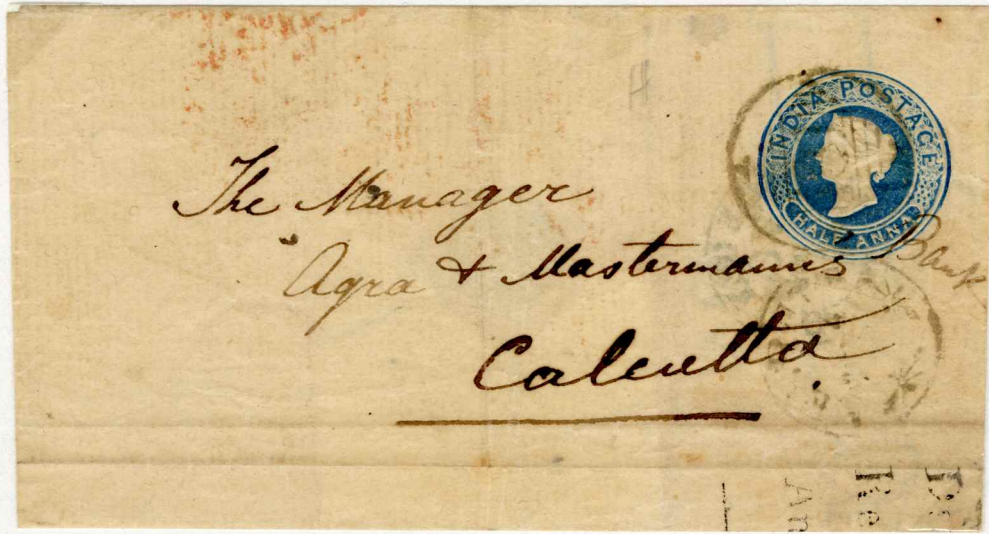 INDIA POSTAGE
HALF ANNA
The Manager
Agra & Mastermanns Bank
Calcutta